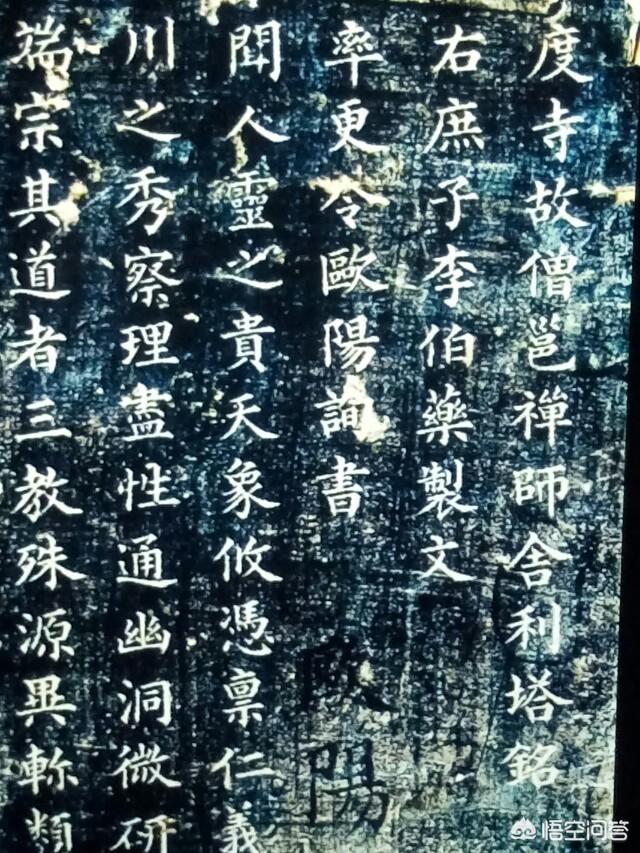 度寺故僧邕禪師舍利塔銘
右庶子李伯藥製文
率更令歐陽詢書
聞人靈之貴天象攸憑稟仁義
川之秀察理盡性通幽洞微研
端宗其道者三教殊源異軫類
歐陽
悟空问答